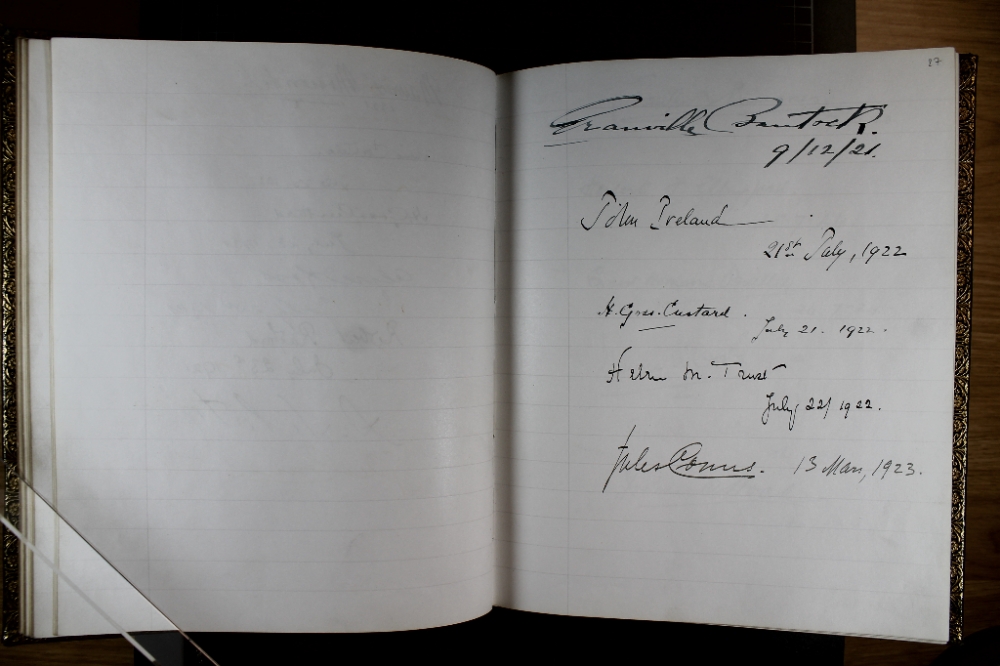 87
Granville Bantock.
9/12/21.
John Ireland
21st July, 1922
H. Goss-Custard.
July 21. 1922.
Helen M. Trust
July 22/1922.
Jules Conus. 13 Mars, 1923.